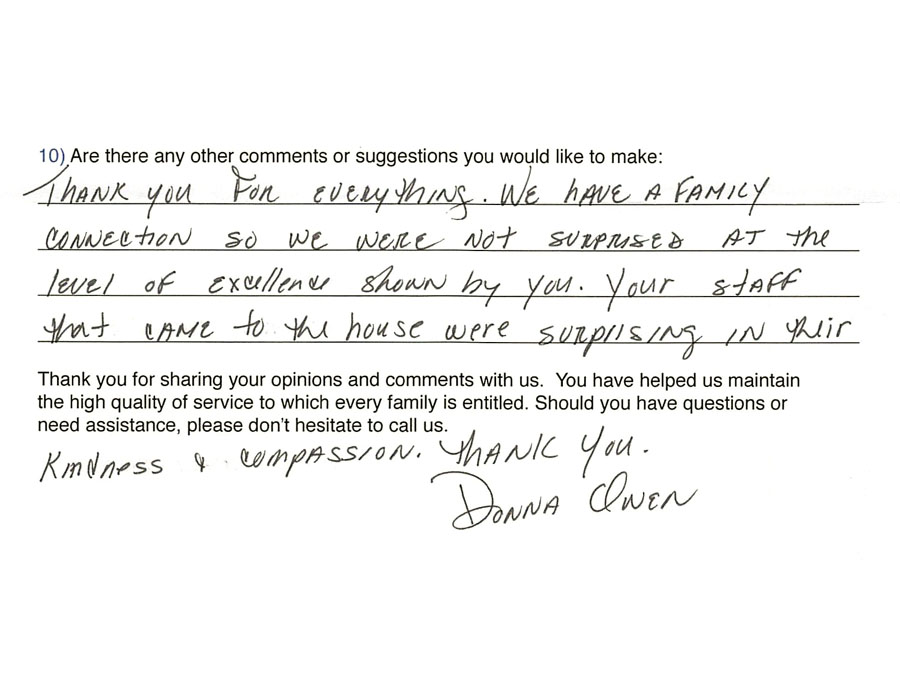 10) Are there any other comments or suggestions you would like to make:
THANK you FOR EVERYthING. WE HAVE A FAMILY
CONNECTION SO WE WERE NOT SURPRISED AT the
level of excellence shown by you. Your stAFF
that CAME to the house were SURPIISING IN their
Thank you for sharing your opinions and comments with us. You have helped us maintain
the high quality of service to which every family is entitled. Should you have questions or
need assistance, please don't hesitate to call us.
Kindness & COMPASSION. THANK You.
DONNA OWEN